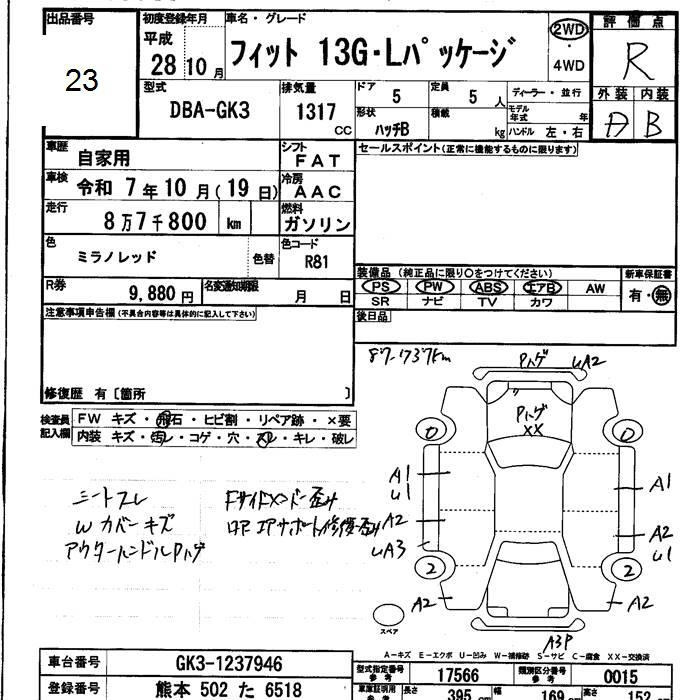 出品番号 23
初度登録年月 平成 28 10 月
車名・グレード フィット 13G・Lパッケージ
2WD・4WD
評価点 R
外装 A 内装 B
型式 DBA-GK3
排気量 1317 CC
ドア 5
定員 5 人
形状 ハッチB
積載 kg
ディーラー・並行
モデル年式 年
ハンドル 左・右
車歴 自家用
シフト FAT
車検 令和 7 年 10 月(19 日)
冷房 AAC
走行 8 万 7 千 800 km
燃料 ガソリン
色 ミラノレッド 色替
色コード R81
R券 9,880 円
名変通知期限 月 日
セールスポイント(正常に機能するものに限ります)
装備品(純正品に限り〇をつけてください)
PS PW ABS エアB AW
SR ナビ TV カワ
新車保証書 有・無
後日品
注意事項申告欄(不具合内容等は具体的に記入して下さい)
修復歴 有〔箇所 〕
検査員記入欄
FW キズ・飛石・ヒビ割・リペア跡・×要
内装 キズ・汚レ・コゲ・穴・スレ・キレ・破レ
87,737km
Pハゲ
UA2
Pハゲ
XX
0
0
A1
U1
A1
A2
UA3
A2
U1
2
2
A2
A2
A3P
スペア
シートスレ
Wカバーキズ
アウターハンドルPハゲ
A-キズ E-エクボ U-凹み W-補修跡 S-サビ C-腐食 XX-交換済
車台番号 GK3-1237946
登録番号 熊本 502 た 6518
型式指定番号 参考 17566
類別区分番号 参考 0015
車庫証明用 参考 長さ 395 cm 幅 169 cm 高さ 152 cm